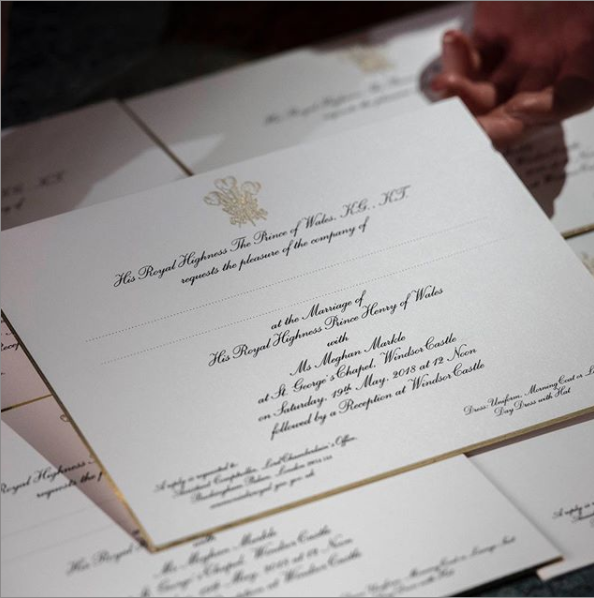 His Royal Highness The
His Royal Highness The Prince of Wales, K.G., K.T.
requests the pleasure of the company of
at the Marriage of
His Royal Highness Prince Henry of Wales
with
Ms Meghan Markle
at St. George's Chapel, Windsor Castle
on Saturday, 19th May, 2018 at 12 Noon
followed by a Reception at Windsor Castle
Dress: Uniform, Morning Coat or
Day Dress with Hat
A reply is requested to:
Assistant Comptroller, Lord Chamberlain's Office,
Buckingham Palace, London
Royal Highness
requests the
His Royal
Ms Meghan Markle
George's Chapel, Windsor Castle
19th May, 2018 at 12 Noon
Windsor Castle
Day Dress with Hat
A reply is